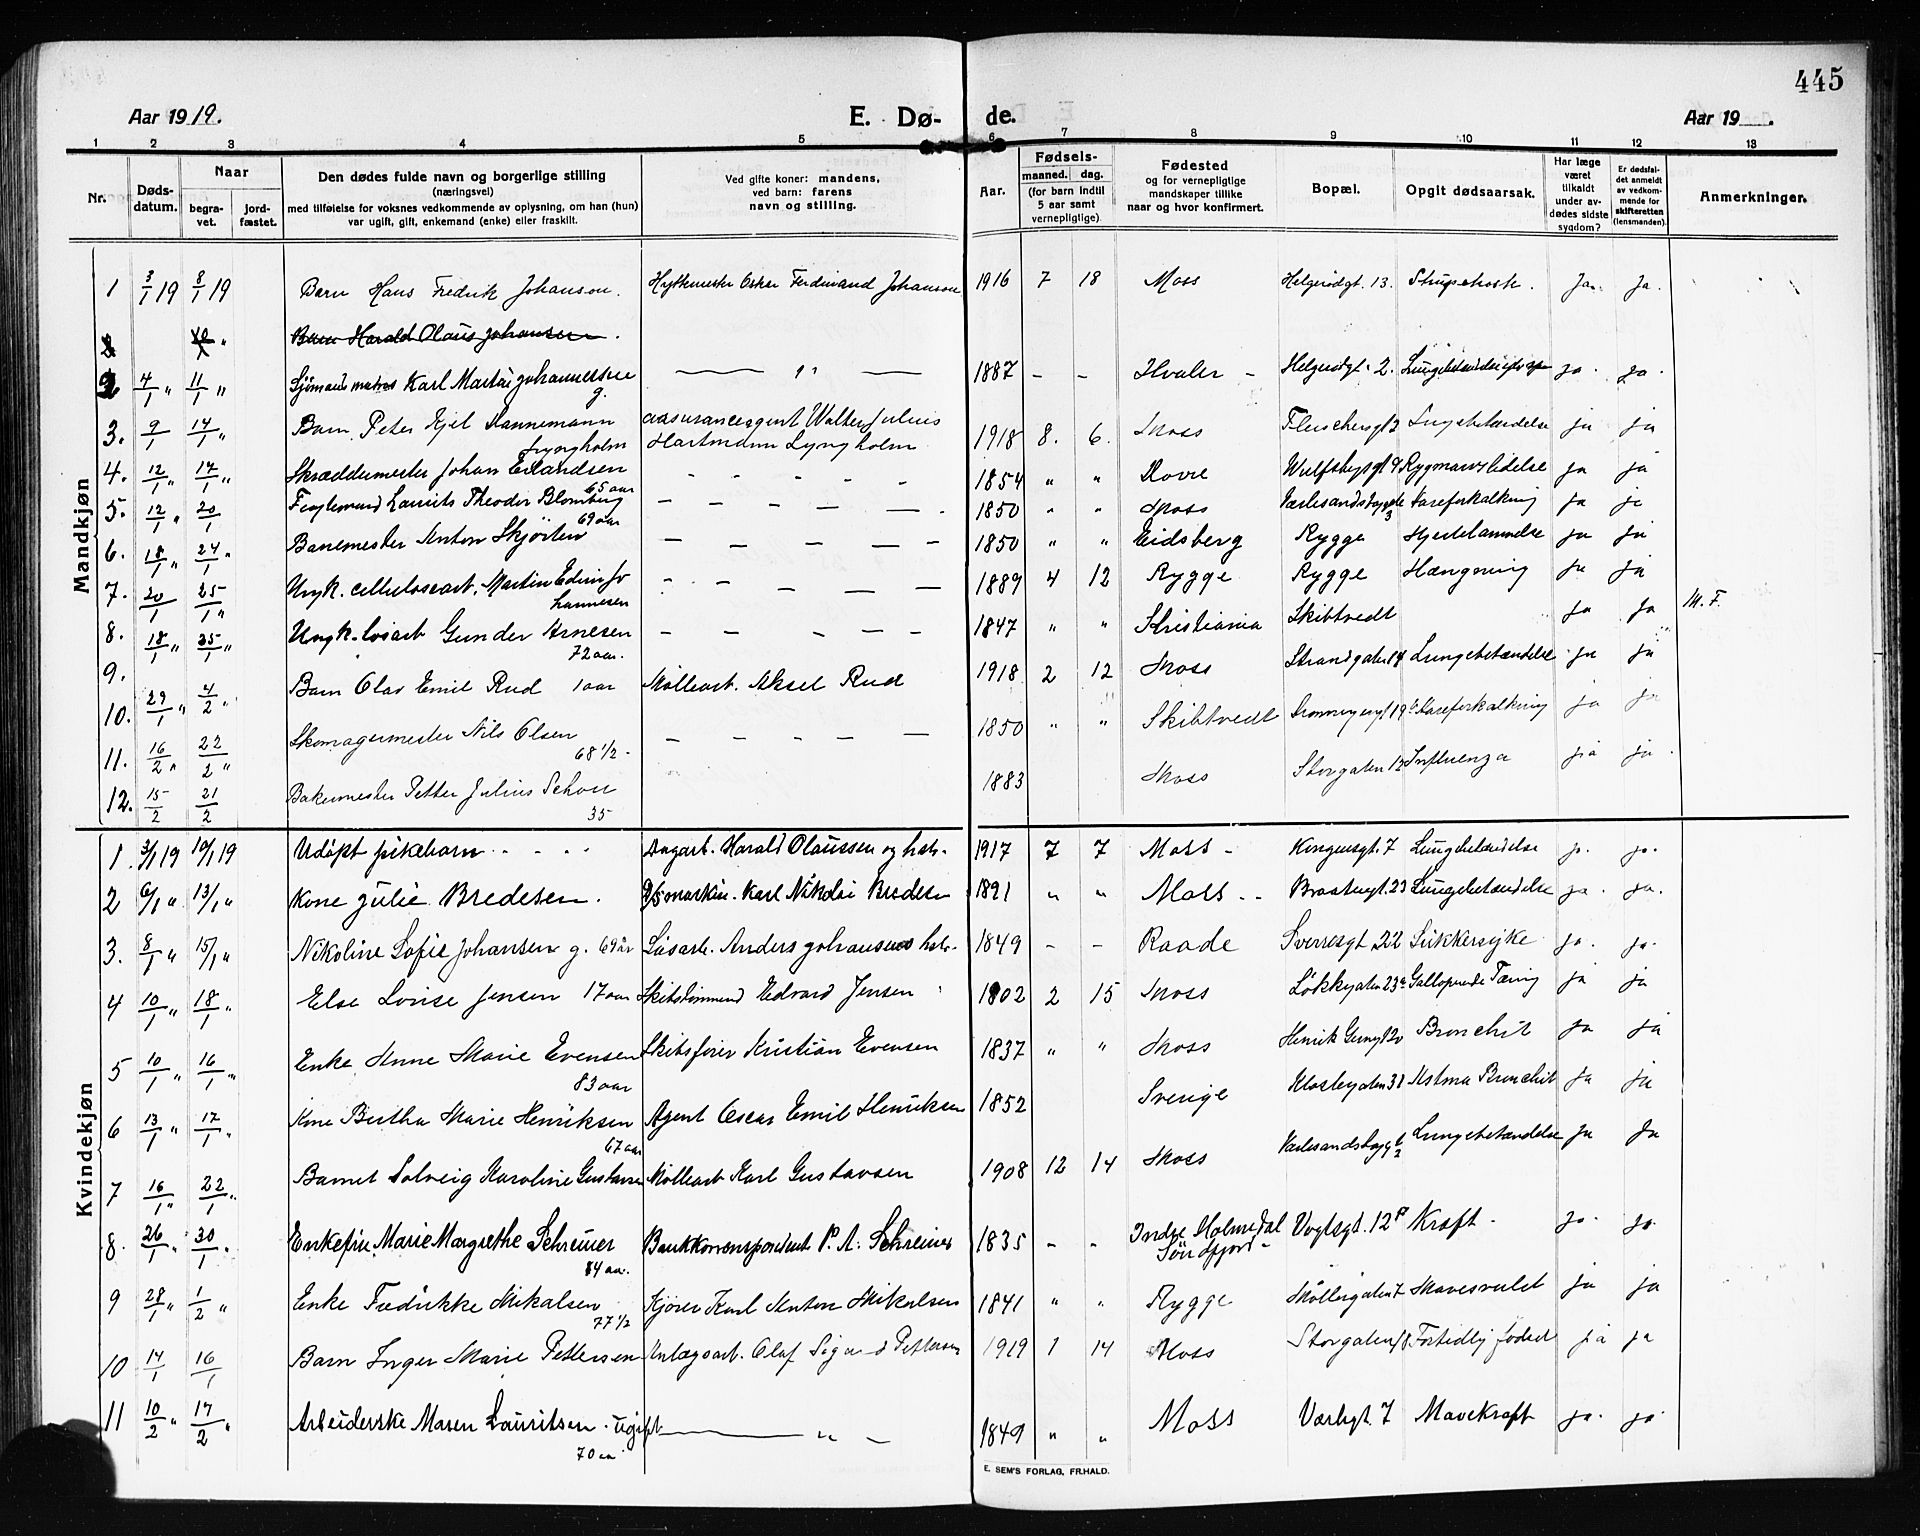 445
Aar 1919.
E. Dø-
de.
Aar 19 .
1 2 3 4 5 6 7 8 9 10 11 12 13
Nr.
Døds-
datum.
Naar
begra-
vet.
jord-
fæstet.
Den dødes fulde navn og borgerlige stilling
(næringsvei)
med tilføielse for voksnes vedkommende av oplysning, om han (hun)
var ugift, gift, enkemand (enke) eller fraskilt.
Ved gifte koner: mandens,
ved barn: farens
navn og stilling.
Aar.
Fødsels-
maaned. dag.
(for barn indtil
5 aar samt
vernepligtige)
Fødested
og for vernepligtige
mandskaper tillike
naar og hvor konfirmert.
Bopæl.
Opgit dødsaarsak.
Har læge
været
tilkaldt
under av-
dødes sidste
sygdom?
Er dødsfal-
det anmeldt
av vedkom-
mende for
skifteretten
(lensmanden).
Anmerkninger.
Mandkjøn
1 3/1 19 8/1 19 Barn Hans Fredrik Johanson. Hyttemester Oskar Ferdinand Johanson 1916 7 18 Moss Helgerødgt. 13. Strupehoste. Ja. Ja.
Barn Harald Olaus Johansen.
2 4/1 " 11/1 " Sjømand Karl Martin Johannessen g. — " — 1887 - - Hvaler - Helgerødgt. 2. ja. ja.
3. 9/1 14/1 " Barn Peter Kjel Hannemann
Lyngholm
assuranceagent Walter Julius
Hartmann Lyngholm 1918 8. 6. Moss 2 Lungebetændelse ja ja
4. 12/1 " 17/1 " Skræddermester Johan Erlandsen
65 aar
- - - - 1854 " " Rygmarvslidelse ja ja
5. 12/1 " 20/1 Laurits Theodor Blomberg
69 aar
- - - - 1850 " " Moss Værlesandsbygge 3 Aareforkalkning ja ja
6. 18/1 " 24/1 " Banemester Anton Skjørten - - - - 1850 " " Eidsberg Rygge Hjertelammelse ja ja
7. 20/1 25/1 " Ungk. cellulosearb. Martin Edvin Jo
hannesen
- - - - 1889 4 12 Rygge Rygge Hængning ja ja
8. 18/1 " 25/1 " Ungk. løsarb Gunder Arnesen
72 aar.
- - - - 1847 " " Kristiania Skibtvedt ja ja M. F.
9.
10. 29/1 " 4/2 " Barn Olav Emil Rud 1 aar Møllearb. Aksel Rud 1918 2 12 Moss Strandgaten 14 Lungebetændelse ja ja
11. 16/2 " 22/2 " Skomagermester Nils Olsen
68 1/2 -
- - - - 1850 " " Skibtvedt Aareforkalkning ja ja
12. 15/2 21/2 Bakermester Petter Julius Schou
35
1883 Moss Storgaten 12 Influenza ja ja.
Kvindekjøn
1. 3/1 19 10/1 19 Udøpt pikebarn - - - - Dagarb. Harald Olaussen og hstr. 1917 7 7 Moss - Kongensgt. 7 Lungebetændelse ja. ja.
2 6/1 " 13/1 " Kone Julie Bredesen. Karl Nikolai Bredesen 1891 " " Moss - - Braatengt. 23 Lungebetændelse ja. ja.
3. 8/1 " 15/1 " Nikoline Sofie Johansen g. 69 år Løsarb. Anders Johansens hstr. 1849 - - Raade Sverresgt 22 Sukkersyke ja. ja.
4 10/1 " 18/1 " Else Lovise Jensen 17 aar Skibstømmermd Edvard Jensen 1902 2 15 Moss Løkkegaten 23a Galloperende Tæring ja ja
5 10/1 " 16/1 " Enke Anne Marie Evensen
83 aar
Skibsfører Kristian Evensen 1837 " " Moss Henrik Gernergt 20 Bronchit ja ja
6 13/1 " 17/1 " Kone Bertha Marie Henriksen
67 aar
Agent Oscar Emil Henriksen 1852 Sverige Klostergaten 31 Astma Bronchit ja ja
7 16/1 " 22/1 " Barnet Solveig Karoline Gustavsen Møllearb Karl Gustavsen 1908 12 14 Moss Lungebetændelse ja ja
8. 26/1 " 30/1 " Enkefru Marie Margrethe Schreiner
84 aa.
Bankkorrespondent P. A. Schreiner 1835 - - Indre Holmedal
Søndfjord -
Vogtsgt. 12 Kræft - ja. ja.
9 28/1 " 1/2 " Enke Fredrikke Mikalsen
77 1/2
Kjører Karl Anton Mikalsen 1841 " " Rygge Møllergaten 7 Mavesvulst ja ja
10 14/1 16/1 Barn Inger Marie Pettersen Anlægsarb. Olaf Sigurd Pettersen 1919 1 14 Moss Storgaten 18 Fortidlig fødsel ja ja
11 10/2 " 17/2 " Arbeiderske Maren Lauritsen. ugift
70 aa
— " - 1849 " " Moss Værlegt. 7 Mavekræft ja. ja.
E. SEM'S FORLAG, FR.HALD.